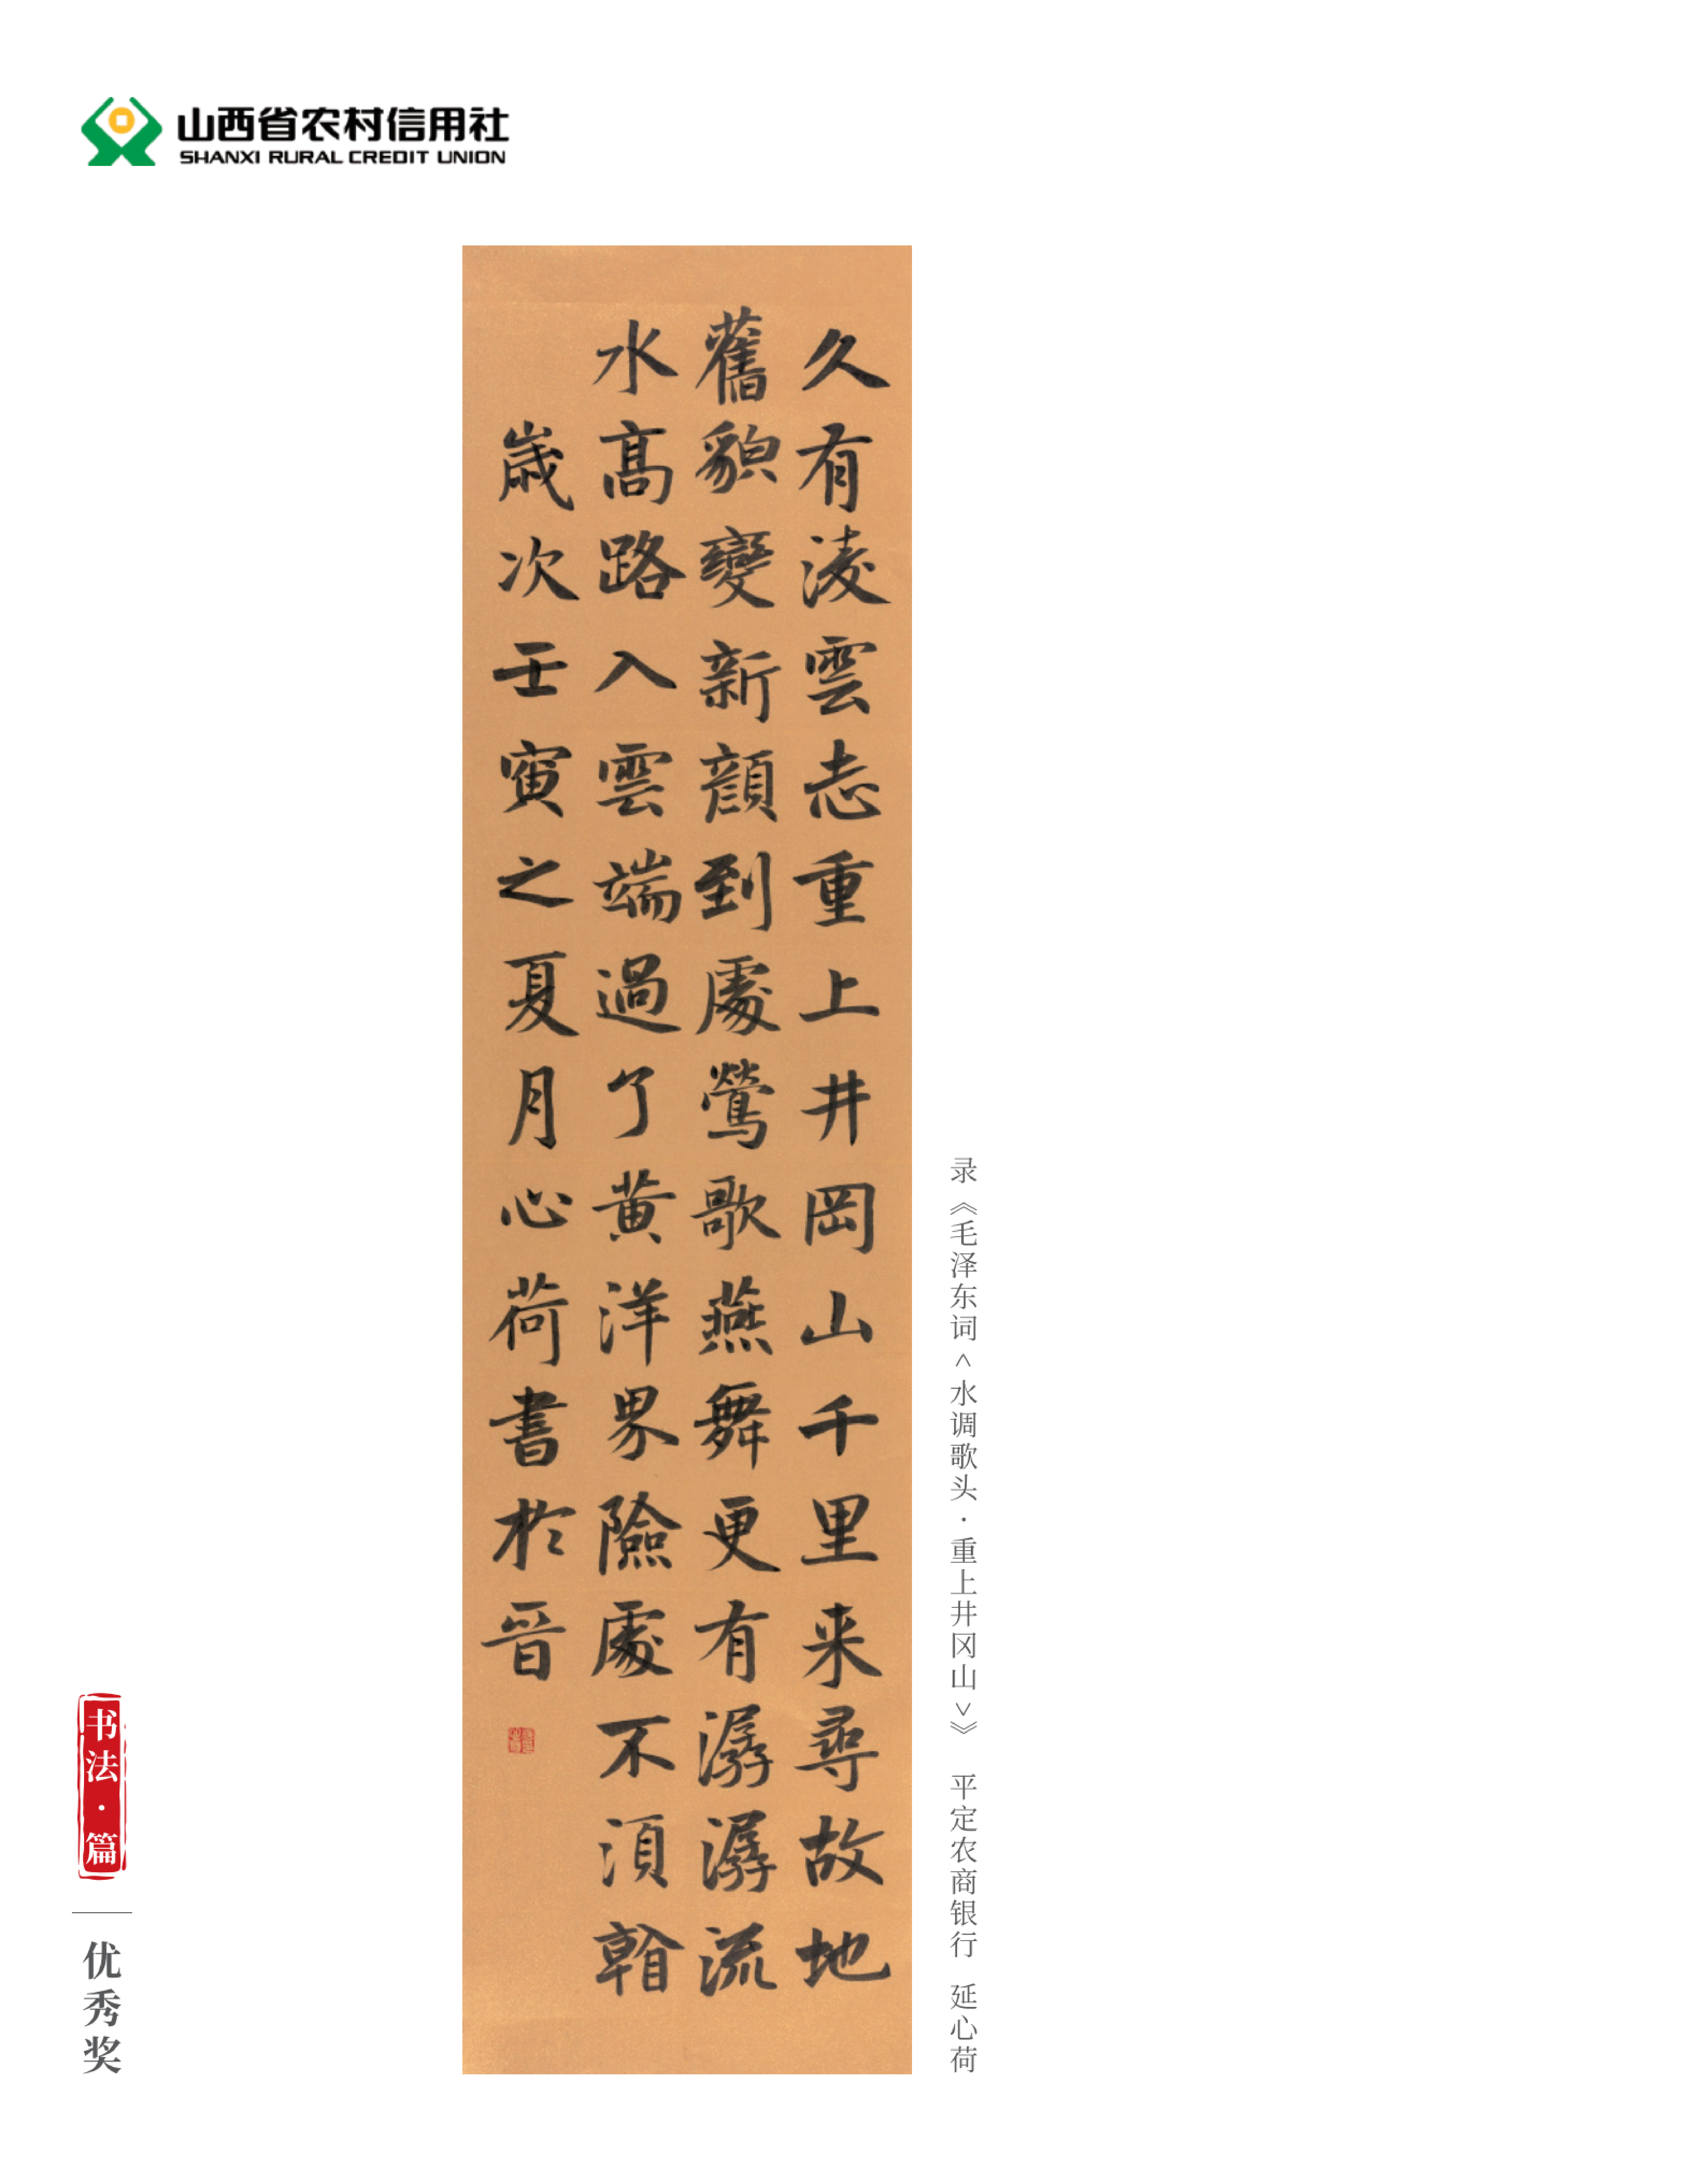 山西省农村信用社
SHANXI RURAL CREDIT UNION
久有淩雲志重上井岡山千里来尋故地
舊貌變新顔到處鶯歌燕舞更有潺潺流
水高路入雲端過了黄洋界險處不須㫺
歲次壬寅之夏月心荷書於晉
录《毛泽东词<水调歌头·重上井冈山>》 平定农商银行 延心荷
书法·篇
优秀奖